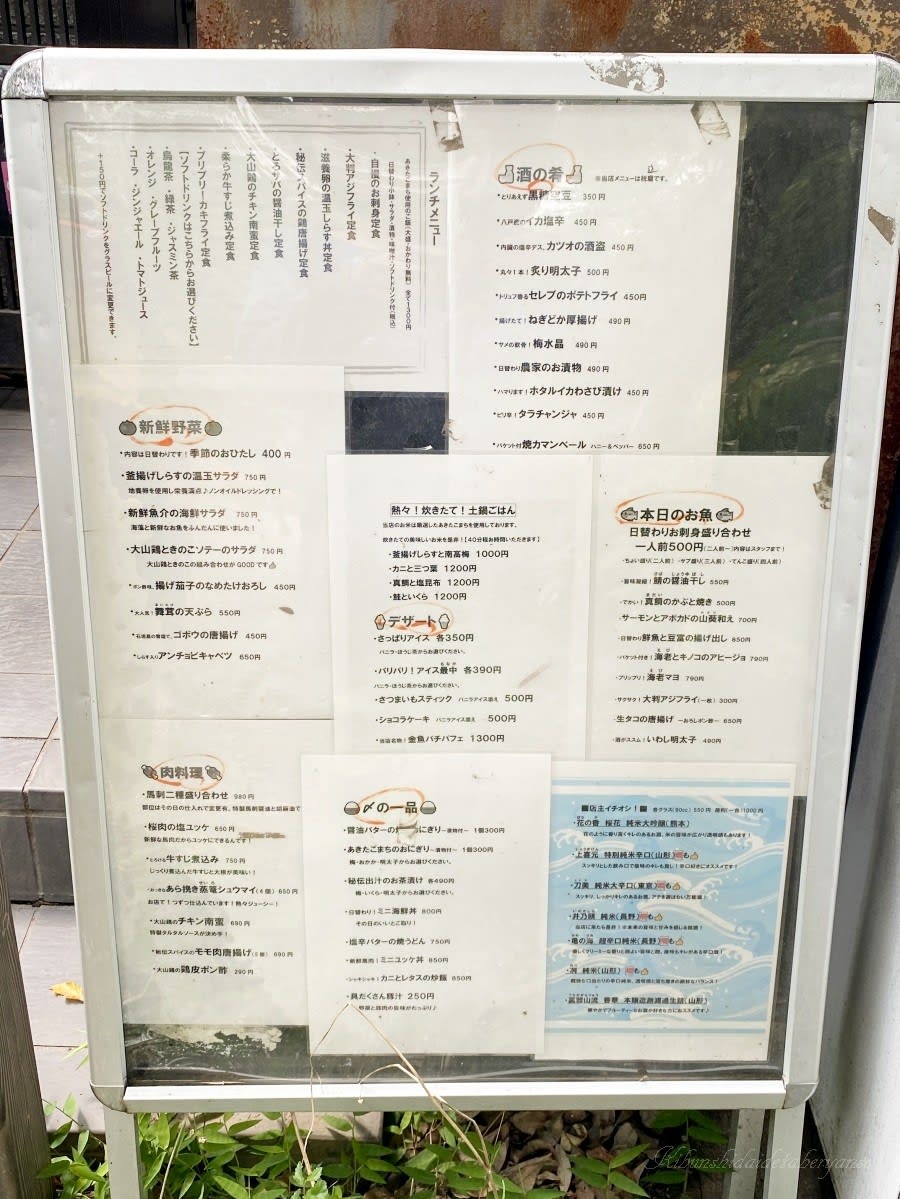 ランチメニュー
あきたこまち使用のご飯(大盛・おかわり無料) 全て1300円
日替わり小鉢・サラダ・漬物・味噌汁・ソフトドリンク付(税込)
・自慢のお刺身定食
・大判アジフライ定食
・滋養卵の温玉しらす丼定食
・秘伝スパイスの鶏唐揚げ定食
・とろサバの醤油干し定食
・大山鶏のチキン南蛮定食
・柔らか牛すじ煮込み定食
・プリプリーカキフライ定食
【ソフトドリンクはこちらからお選びください】
・烏龍茶 ・緑茶 ・ジャスミン茶
・オレンジ ・グレープフルーツ
・コーラ ・ジンジャエール ・トマトジュース
+150円でソフトドリンクをグラスビールに変更できます。
酒の肴 ※当店メニューは税込です。
・とりあえず黒糖空豆 350円
・八戸産のイカ塩辛 450円
・内臓の塩辛デス、カツオの酒盗 450円
・丸々1本!炙り明太子 500円
・トリュフ香るセレブのポテトフライ 450円
・揚げたて!ねぎどか厚揚げ 490円
・サメの軟骨!梅水晶 490円
・日替わり農家のお漬物 490円
・ハマります!ホタルイカわさび漬け 450円
・ピリ辛!タラチャンジャ 450円
・バケット付焼カマンベール ハニー&ペッパー 650円
新鮮野菜
・内容は日替わりです!季節のおひたし 400円
・釜揚げしらすの温玉サラダ 750円
地養卵を使用し栄養満点♪ノンオイルドレッシングで!
・新鮮魚介の海鮮サラダ 750円
海藻と新鮮なお魚をふんだんに使いました!
・大山鶏ときのこソテーのサラダ 750円
大山鶏ときのこの組み合わせがGOODです👍
・ポン酢味、揚げ茄子のなめたけおろし 450円
・大人気!舞茸の天ぷら 550円
・石垣島の雪塩で、ゴボウの唐揚げ 450円
・しらす入りアンチョビキャベツ 650円
熱々!炊きたて!土鍋ごはん
当店のお米は厳選したあきたこまちを使用しております。
炊きたての美味しいお米を是非!【40分程お時間いただきます】
・釜揚げしらすと南高梅 1000円
・カニと三つ葉 1200円
・真鯛と塩昆布 1200円
・鮭といくら 1200円
デザート
・さっぱりアイス 各350円
バニラ・ほうじ茶からお選びください。
・パリパリ!アイス最中 各390円
バニラ・ほうじ茶からお選びください。
・さつまいもスティック バニラアイス添え 500円
・ショコラケーキ バニラアイス添え 500円
・当店名物!金魚バチパフェ 1300円
本日のお魚
日替わりお刺身盛り合わせ
一人前500円(二人前~)内容はスタッフまで!
・ちょい盛(二人前) ・サブ盛り(三人前) ・てんこ盛り(四人前)
・旨味凝縮!鯖の醤油干し 550円
・でかい!真鯛のかぶと焼き 500円
・サーモンとアボカドの山葵和え 700円
・日替わり鮮魚と豆富の揚げ出し 850円
・バケット付き!海老とキノコのアヒージョ 790円
・プリップリ!海老マヨ 790円
・サクサク!大判アジフライ(一枚) 300円
・生タコの唐揚げ ~おろしポン酢~ 650円
・酒がススム!いわし明太子 490円
肉料理
・馬刺二種盛り合わせ 980円
部位はその日の仕入れで変更有。特製馬刺醤油と胡麻油で
・桜肉の塩ユッケ 650円
新鮮な馬肉だからユッケにできるんです!
・とろける牛すじ煮込み 750円
じっくり煮込んだ牛すじと大根が美味い!
・おっきなあら挽き蒸篭シュウマイ(4個) 650円
お店で!1つずつ仕込んでいます!熱々ジューシー!
・大山鶏のチキン南蛮 690円
特製タルタルソースが決め手!
・秘伝スパイスのモモ肉唐揚げ(5個) 690円
・大山鶏の鶏皮ポン酢 290円
〆の一品
・醤油バターの焼きおにぎり~漬物付~ 1個300円
・あきたこまちのおにぎり~漬物付~ 1個300円
梅・おかか・明太子からお選びください。
・秘伝出汁のお茶漬け 各490円
梅・いくら・明太子からお選びください。
・日替わり!ミニ海鮮丼 800円
その日のいいとこ取り!
・塩辛バターの焼うどん 750円
・新鮮馬肉!ミニユッケ丼 850円
・シャキシャキ!カニとレタスの炒飯 850円
・具だくさん豚汁 250円
野菜と豚肉の旨味がたっぷり♪
■店主イチオシ!■ 香グラス(90cc) 550円 徳利(一合)1000円
・花の香 桜花 純米大吟醸(熊本)
花のように香り高くキレのあるお酒、米の旨味が広がり透明感もあります!
・上喜元 特別純米辛口(山形)も👍
スッキリとした飲み口で酸味のキレも良し!辛口好きにオススメです!
・刀美 純米大辛口(東京)も👍
・井乃頭 純米(長野)も👍
・亀の海 超辛口純米(長野)も👍
・純米(山形)も👍
Kibunshidaidetaberyanse